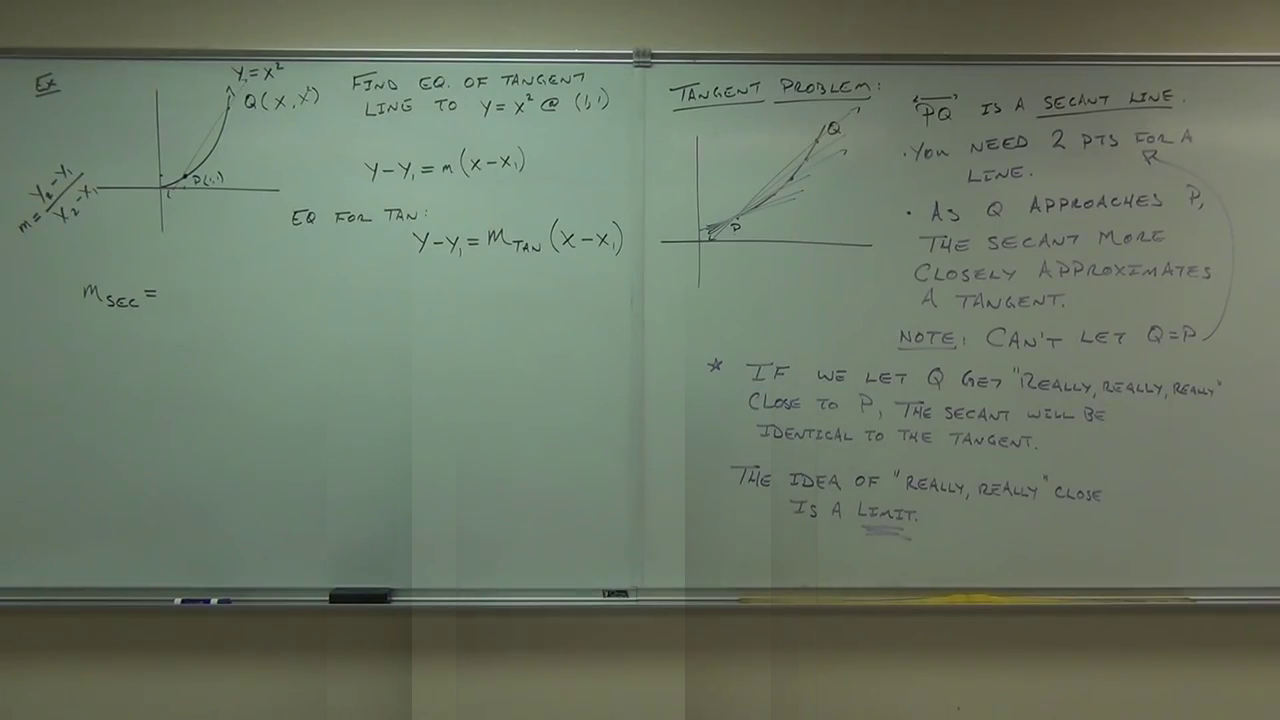 Ex
Y=X²
Q(X, X²)
P(1,1)
1
m = Y₂-Y₁/X₂-X₁
FIND EQ. OF TANGENT
LINE TO Y=X² @ (1,1)
Y-Y₁=m(X-X₁)
EQ FOR TAN:
Y-Y₁=M_TAN(X-X₁)
M_SEC=
TANGENT PROBLEM:
Q
P
PQ IS A SECANT LINE.
·YOU NEED 2 PTS FOR A
LINE.
· AS Q APPROACHES P,
THE SECANT MORE
CLOSELY APPROXIMATES
A TANGENT.
NOTE: CAN'T LET Q=P
* IF WE LET Q GET "REALLY, REALLY, REALLY"
CLOSE TO P, THE SECANT WILL BE
IDENTICAL TO THE TANGENT.
THE IDEA OF "REALLY, REALLY" CLOSE
IS A LIMIT.